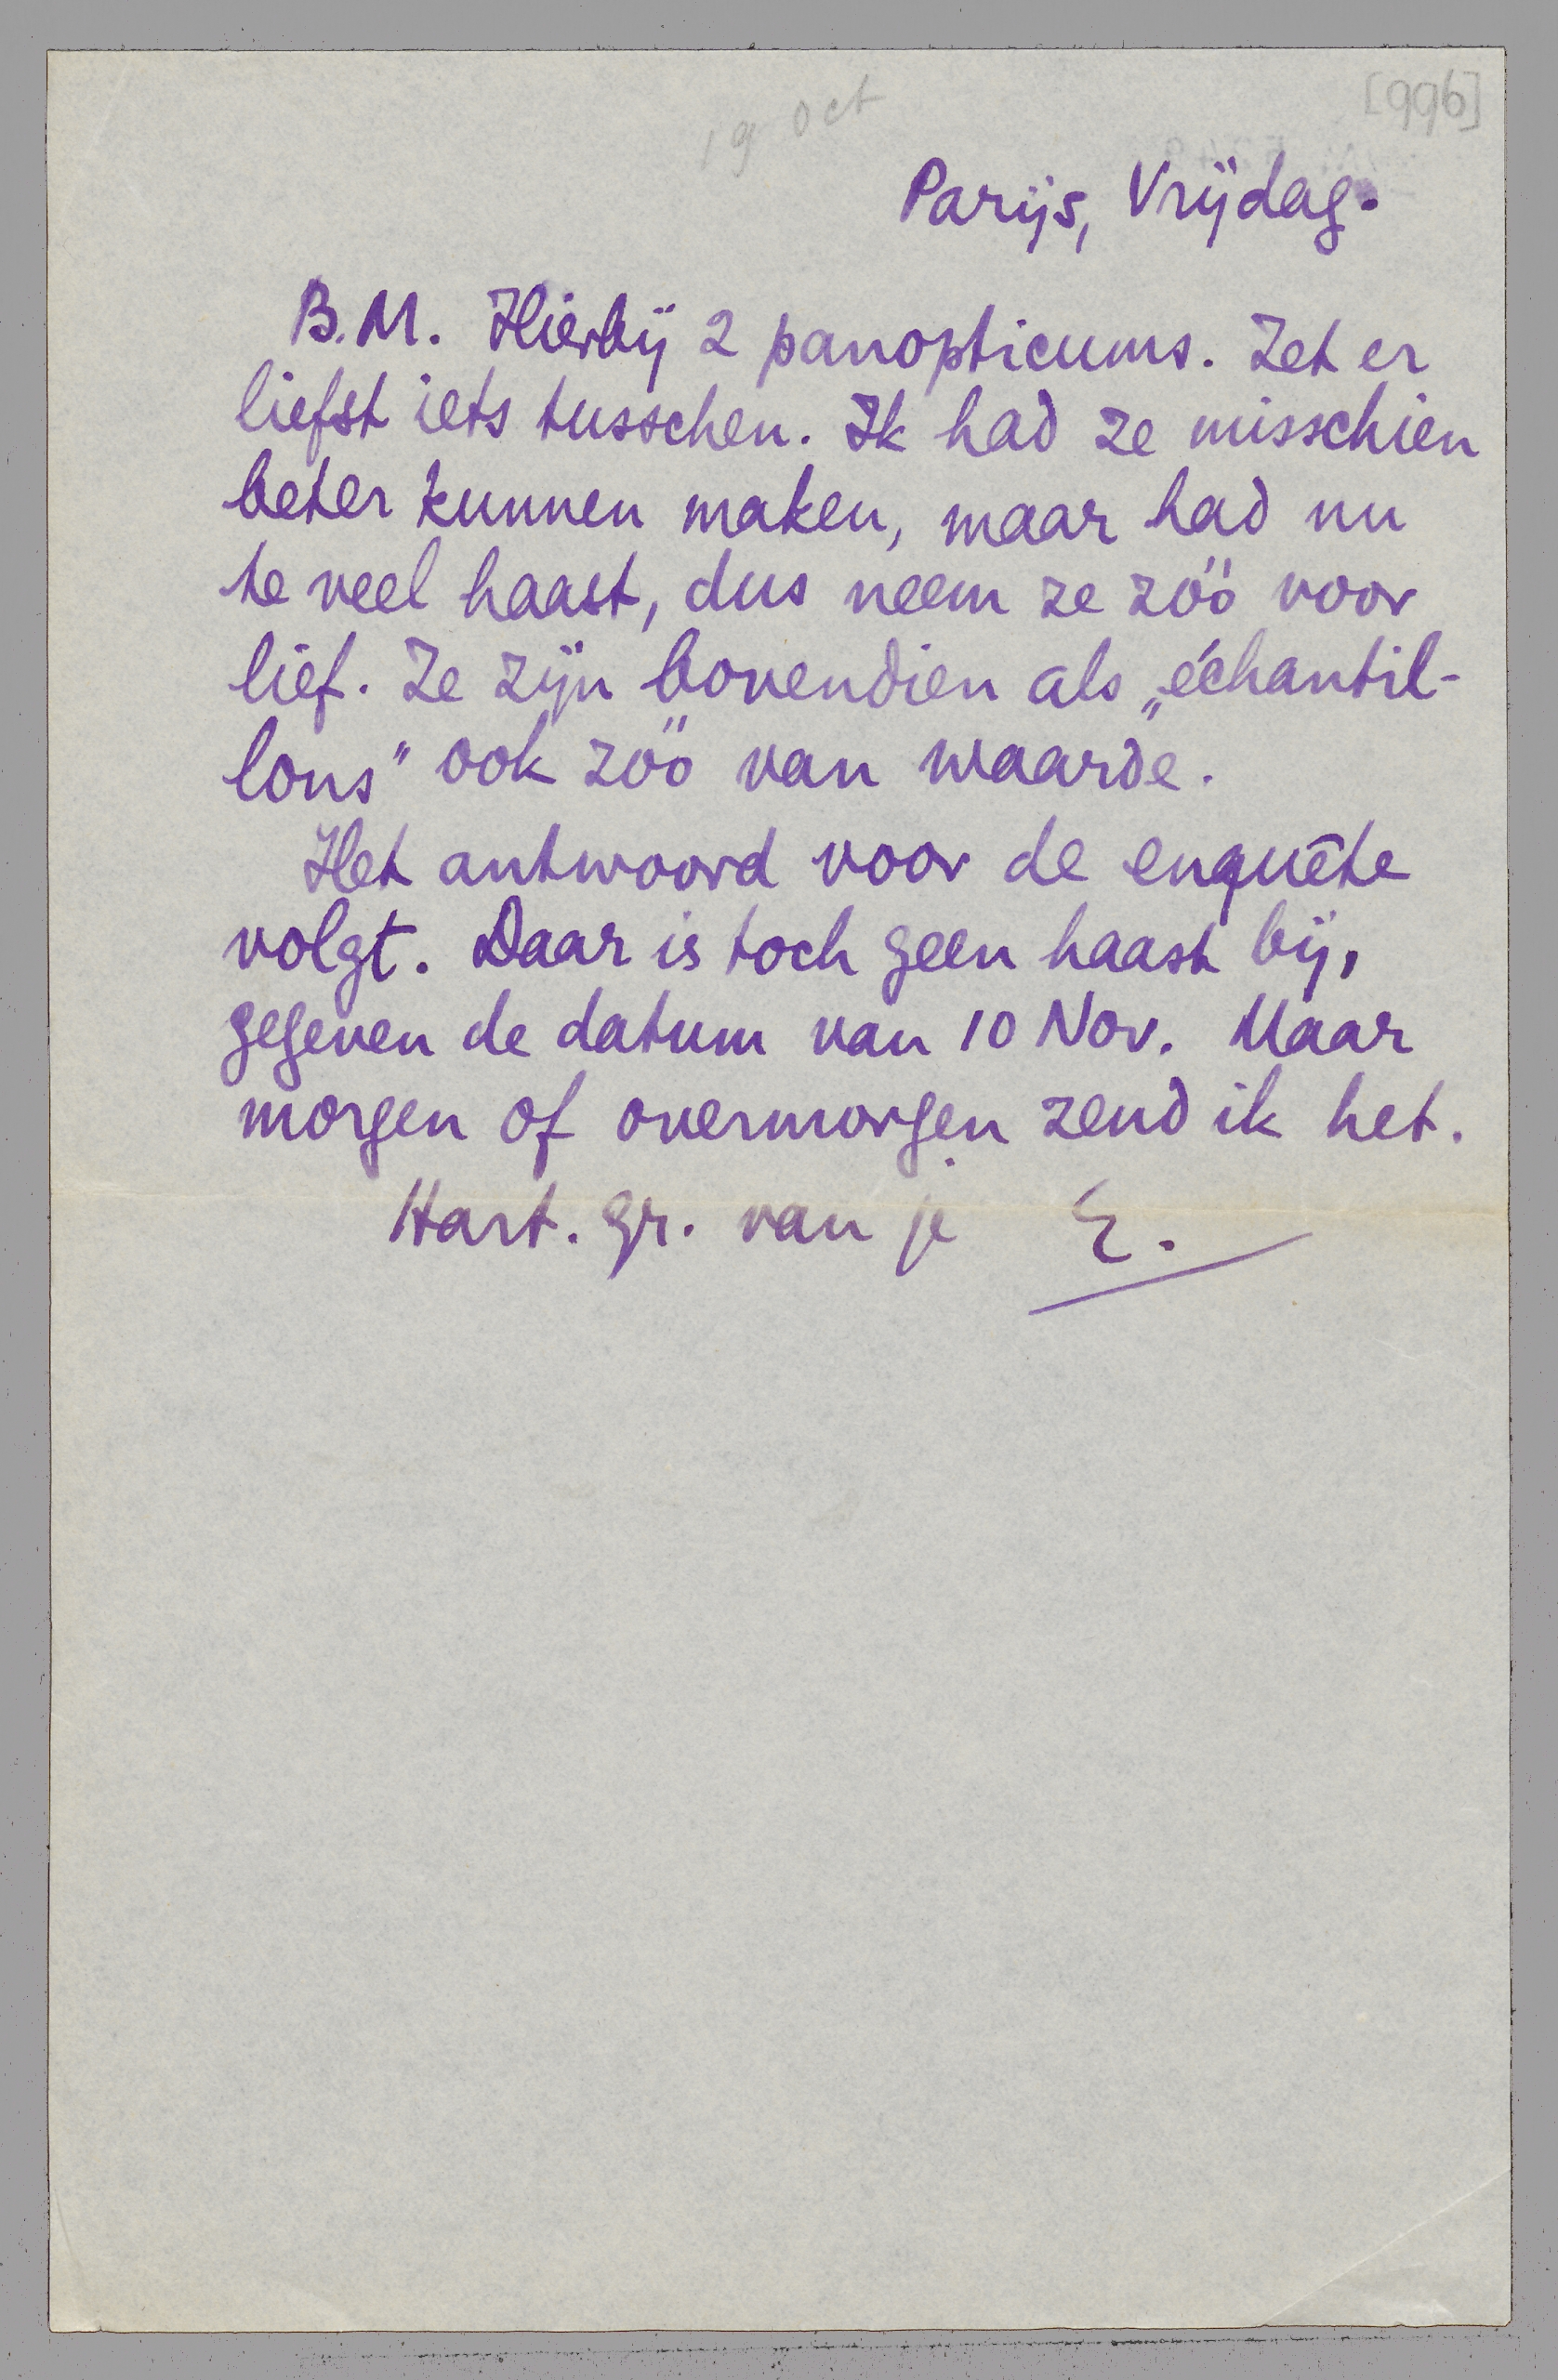 19 oct
[996]
Parijs, Vrijdag.
B.M. Hierbij 2 panopticums. Zet er
liefst iets tusschen. Ik had ze misschien
beter kunnen maken, maar had nu
te veel haast, dus neem ze zóó voor
lief. Ze zijn bovendien als „échantil-
lons" ook zóó van waarde.
Het antwoord voor de enquête
volgt. Daar is toch geen haast bij,
gegeven de datum van 10 Nov. Maar
morgen of overmorgen zend ik het.
Hart. gr. van je E.